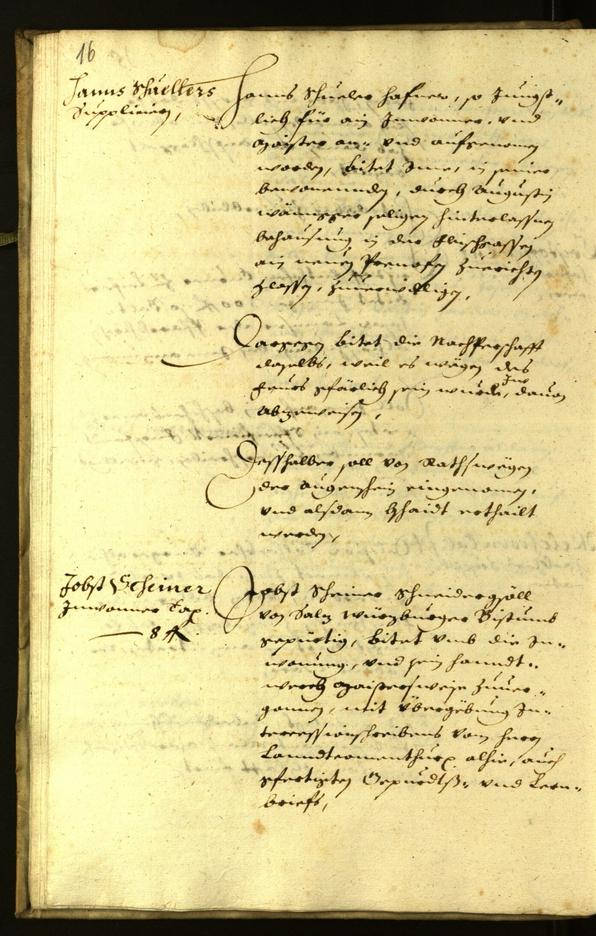 16
Hanns Schuellers
Supplicieren,
Hanns Schueler Hafner, so Jungst-
lich für ain Inwoner, und
Maister an- und aufgenomen
worden, bitet Ime, in seiner
bewonennden, durch Augustin
seligen hinterlassnen
behausung in der Fleischgassen
ain neuen Prennofen zuerichten
zlassen, zuverwilligen,
Dargegen bitet die Nachperschafft
daselbs, weil es wegen des
Feurs gfärlich sein wurde, Ine davon
abzuweisen,
Desshalben soll von Rathswegen
der Augenschein eingenomen,
und alsdann bschaidt erthailt
werden,
Jobst Scheiner
Inwoner Tax.
— 8 fl
Jobst Scheiner Schneidergsöll
von Salz Würzburger Bistumbs
gepürtig, bitet umb die In-
wonung, und sein Handt-
werch Maistersweise zuver-
gonnen, mit Übergebung In-
tercessionschreibens vom Herrn
Lanndtcomenthurn alhie, auch
gfertigten Gepurdts- und Lern-
briefs,